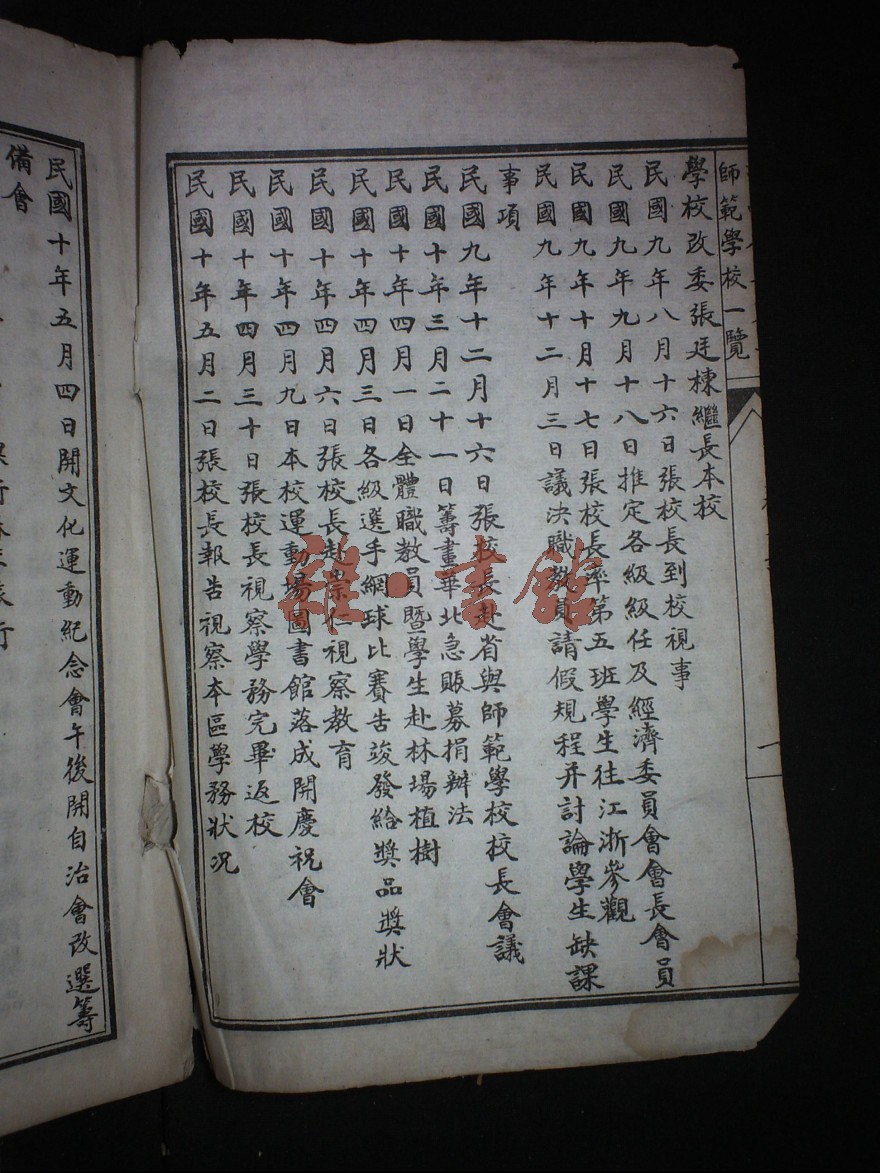 師範學校一覽
一
學校改委張廷棟繼長本校
民國九年八月十六日張校長到校視事
民國九年九月十八日推定各級級任及經濟委員會會長會員
民國九年十月十七日張校長率第五班學生往江浙參觀
民國九年十二月三日議決職教員請假規程并討論學生缺課
事項
民國九年十二月十六日張校長赴省與師範學校校長會議
民國十年三月二十一日籌畫華北急賑募捐辦法
民國十年四月一日全體職教員暨學生赴林場植樹
民國十年四月三日各級選手網球比賽告竣發給獎品獎狀
民國十年四月六日張校長赴崇仁視察教育
民國十年四月九日本校運動場圖書館落成開慶祝會
民國十年四月三十日張校長視察學務完畢返校
民國十年五月二日張校長報告視察本區學務狀况
民國十年五月四日開文化運動紀念會午後開自治會改選籌
備會
雜·書館